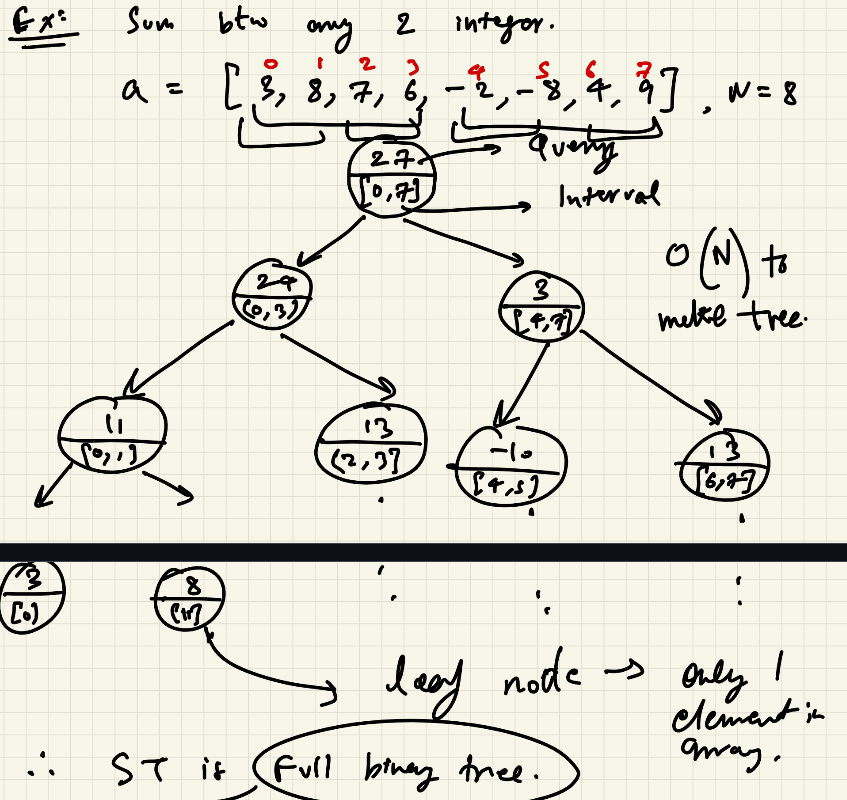 Ex: Sum btw any 2 integer.
0 1 2 3 4 5 6 7
a = [ 3, 8, 7, 6, -2, -8, 4, 9 ] , N = 8
27 → Query
[0,7] → Interval
24
(0,3)
3
[4,7]
O(N) to
make tree.
11
[0,1]
13
(2,3]
-10
[4,5]
13
[6,7]
3
[0]
8
[1]
leaf node → only 1
element in
array.
∴ ST is Full binary tree.